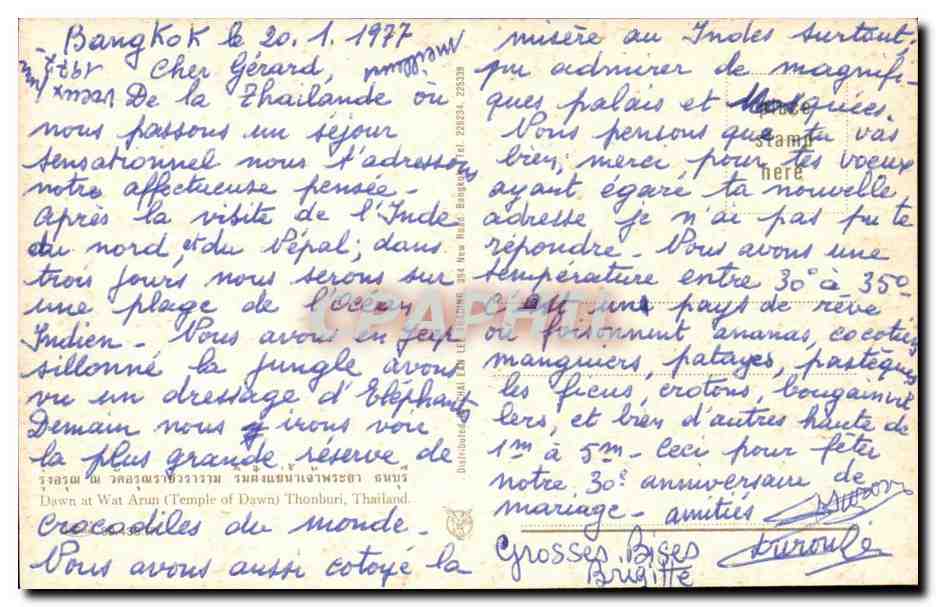 Bangkok le 20.1.1977
Cher Gérard,
Meilleurs
vœux
1977
De la Thaïlande où
nous passons un séjour
sensationnel nous t'adressons
notre affectueuse pensée -
Après la visite de l'Inde
du nord, et du Népal; dans
trois jours nous serons sur
une plage de l'océan
Indien - Nous avons en jeep
sillonné la jungle avons
vu un dressage d'Eléphants
Demain nous irons voir
la plus grande réserve de
รุ่งอรุณ ณ วัดอรุณราชวราราม ริมฝั่งแม่น้ำเจ้าพระยา ธนบุรี
Dawn at Wat Arun (Temple of Dawn) Thonburi, Thailand.
crocodiles du monde -
Nous avons aussi cotoyé la
Distributed
394 New Road. Bangkok. Tel. 226234, 225339
misère au Indes surtout,
pu admirer de magnifi-
ques palais et
place
stamp
here
Nous pensons que tu vas
bien, merci pour tes voeux
ayant égaré ta nouvelle
adresse je n'ai pas pu te
répondre - Nous avons une
température entre 30° à 35°
c'est un pays de rêve
où foisonnent ananas, cocotiers
manguiers, patayes, pastèques
les ficus, crotons, bougainvil
lers, et bien d'autres haute de
1m à 5m - Ceci pour fêter
notre 30e anniversaire de
mariage - amitiés
Grosses Bises
Brigitte
CPAPHIL